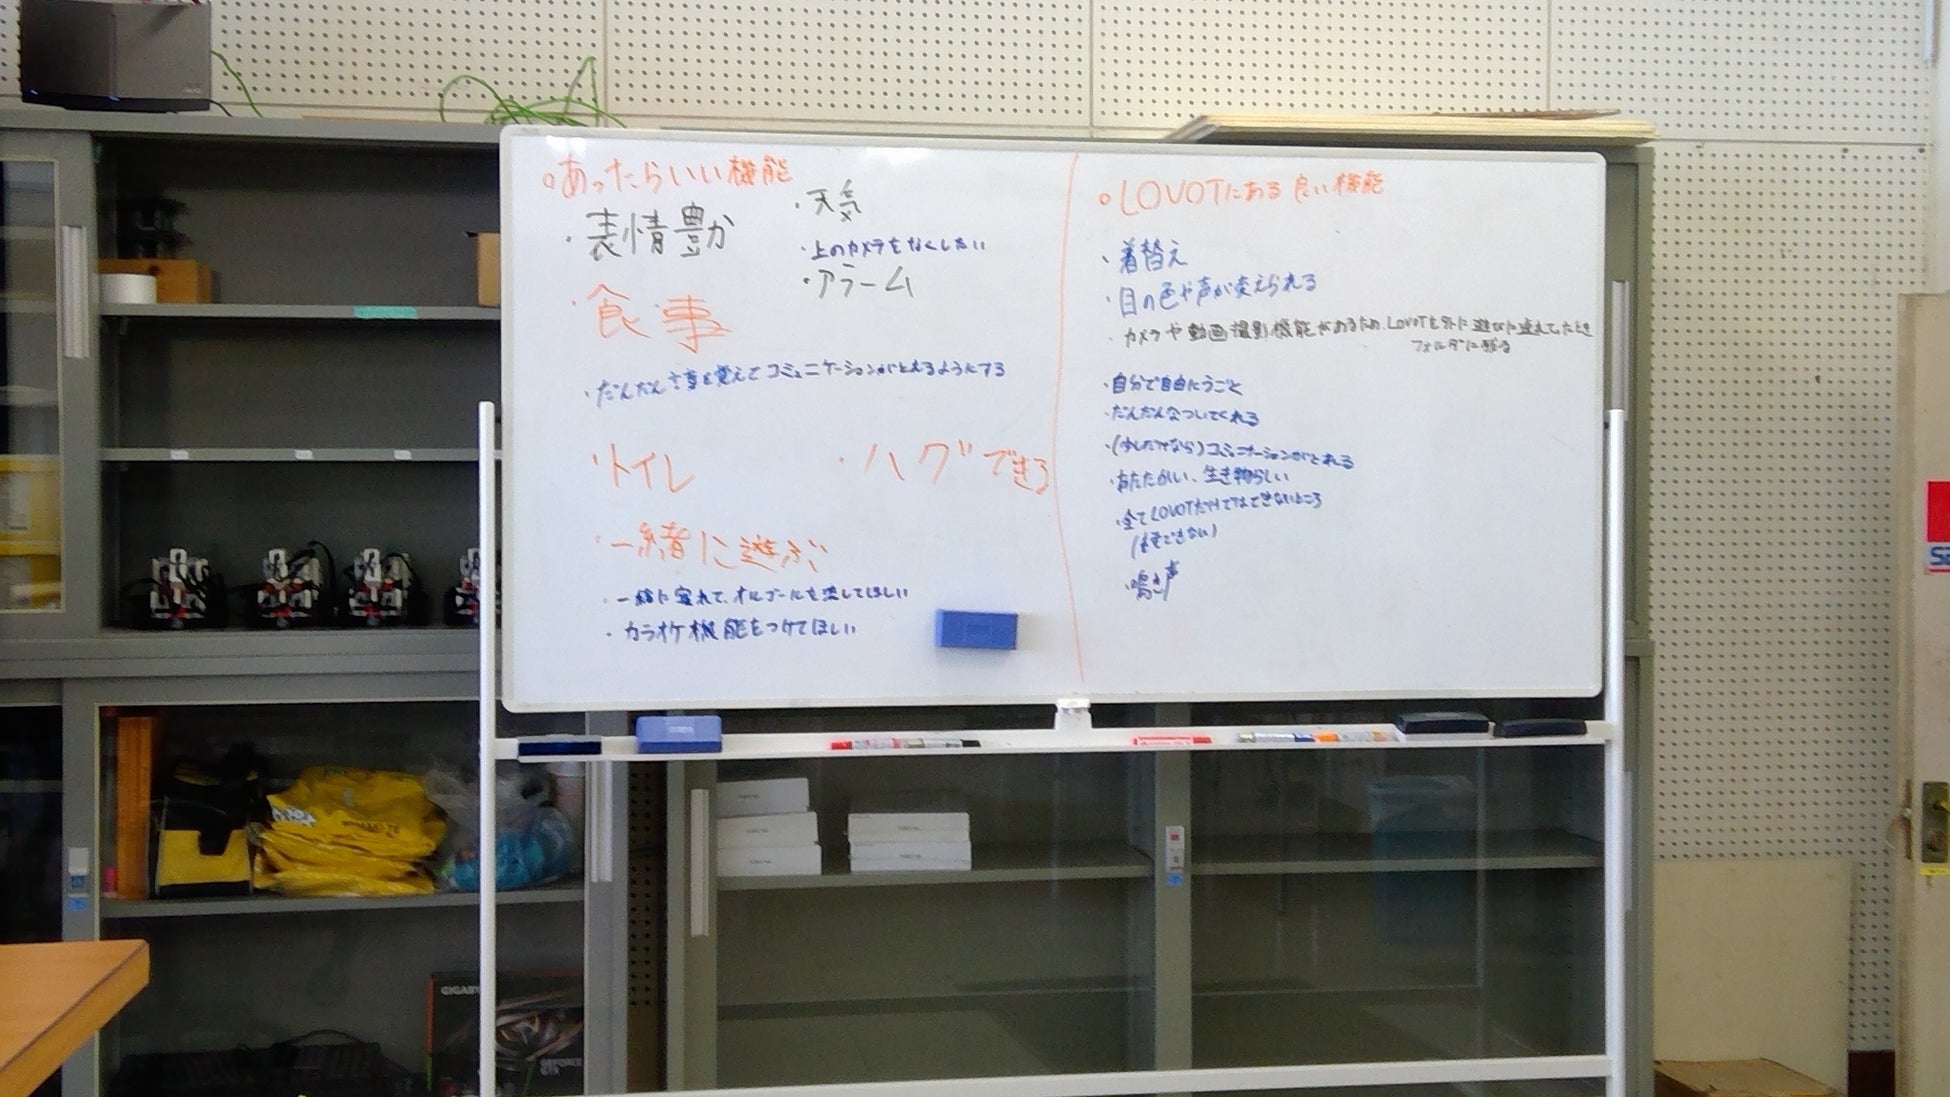 ○あったらいい機能
・表情豊か
・天気
・上のカメラをなくしたい
・アラーム
・食事
・だんだん言葉を覚えてコミュニケーションがとれるようにする
・トイレ
・ハグできる
・一緒に遊ぶ
・一緒に寝れて、オルゴールを流してほしい
・カラオケ機能をつけてほしい
○LOVOTにある良い機能
・着替え
・目の色や声が変えられる
・カメラや動画撮影機能があるため、LOVOTを外に遊びに連れてったとき
フォルダに残る
・自分で自由にうごく
・だんだんなついてくれる
・(少しだけなら)コミュニケーションがとれる
・あたたかい、生き物らしい
・全てLOVOTだけではできないところ
・鳴き声
GIGABYTE
GEFORCE
GTX